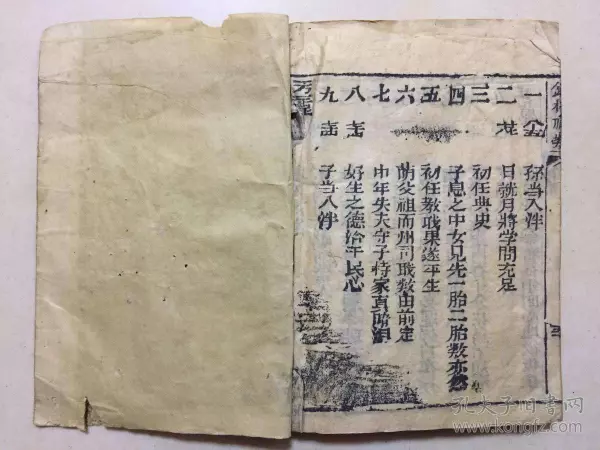 一 金 孫当入泮
二 花 日就月將学問充足
三 初任典史
四 子息之中女兒先一胎二胎数亦然
五 初任教职果遂平生
六 荫父祖而州司职数由前定
七 中年失夫守子持家真暗泪
八 好生之德洽于民心
九 子当入泮
孔夫子旧书网
www.kongfz.com